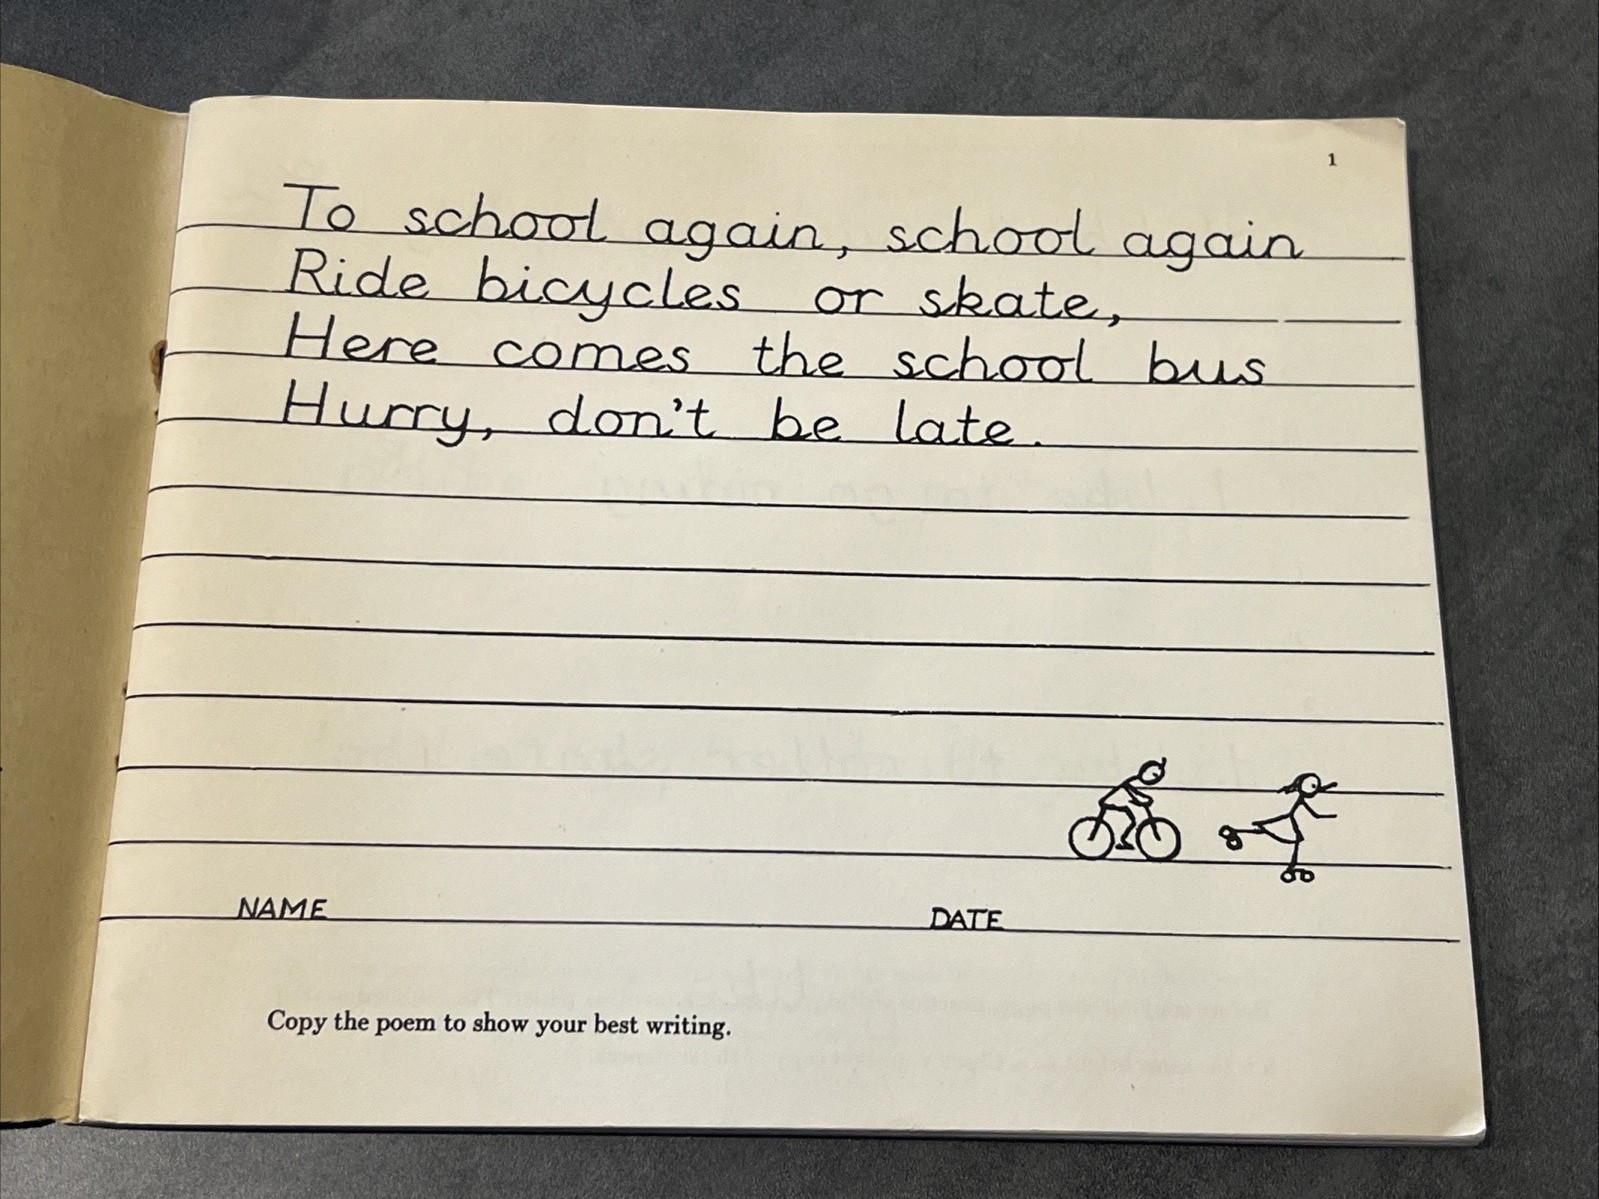 1
To school again, school again
Ride bicycles or skate,
Here comes the school bus
Hurry, don't be late.
NAME DATE
Copy the poem to show your best writing.